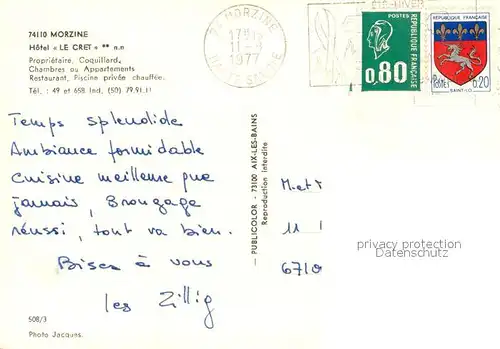 74110 MORZINE
Hôtel « LE CRET » ** n.n
Propriétaire, Coquillard,
Chambres ou Appartements
Restaurant, Piscine privée chauffée.
Tél. : 49 et 658 Ind. (50) 79.91.11
74 MORZINE
17H15
11-3
1977
HTE SAVOIE
ETE-HIVER
POSTES
0,80
POSTES
0,20
SAINT-LO
Temps splendide
Ambiance formidable
Cuisine meilleure que
jamais, Bronzage
réussi, tout va bien.
Bises à vous
les Zillig
PUBLICOLOR - 73100 AIX-LES-BAINS
Reproduction interdite
M. et
11
670
privacy protection
Datenschutz
508/3
Photo Jacques.